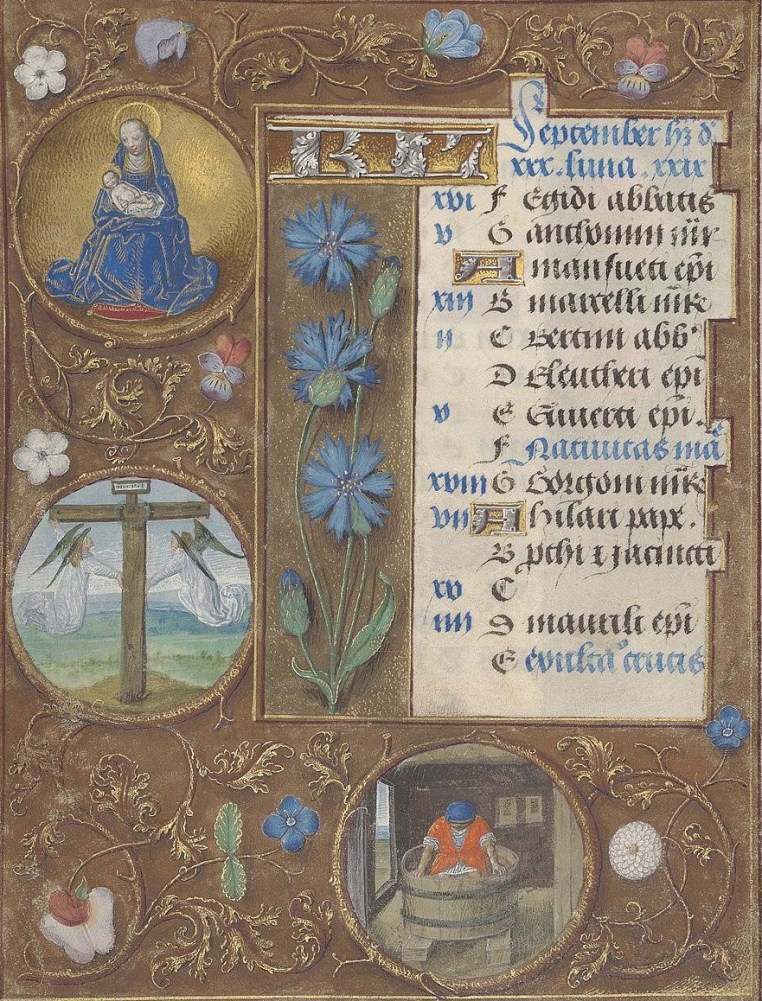 KL
September hz d
xxx. luna. xxix
xvi F Egidi abbatis
v G anthonini mr
A mansueti epi
xiii B marcelli mr
ii C Bertini abb
D Eleutheri epi
v E epi.
F Nativitas ma
xviii G Gorgoni mr
vii A hilari pape.
B pthi z jacincti
xv C
iiii D maurili epi
E crucis